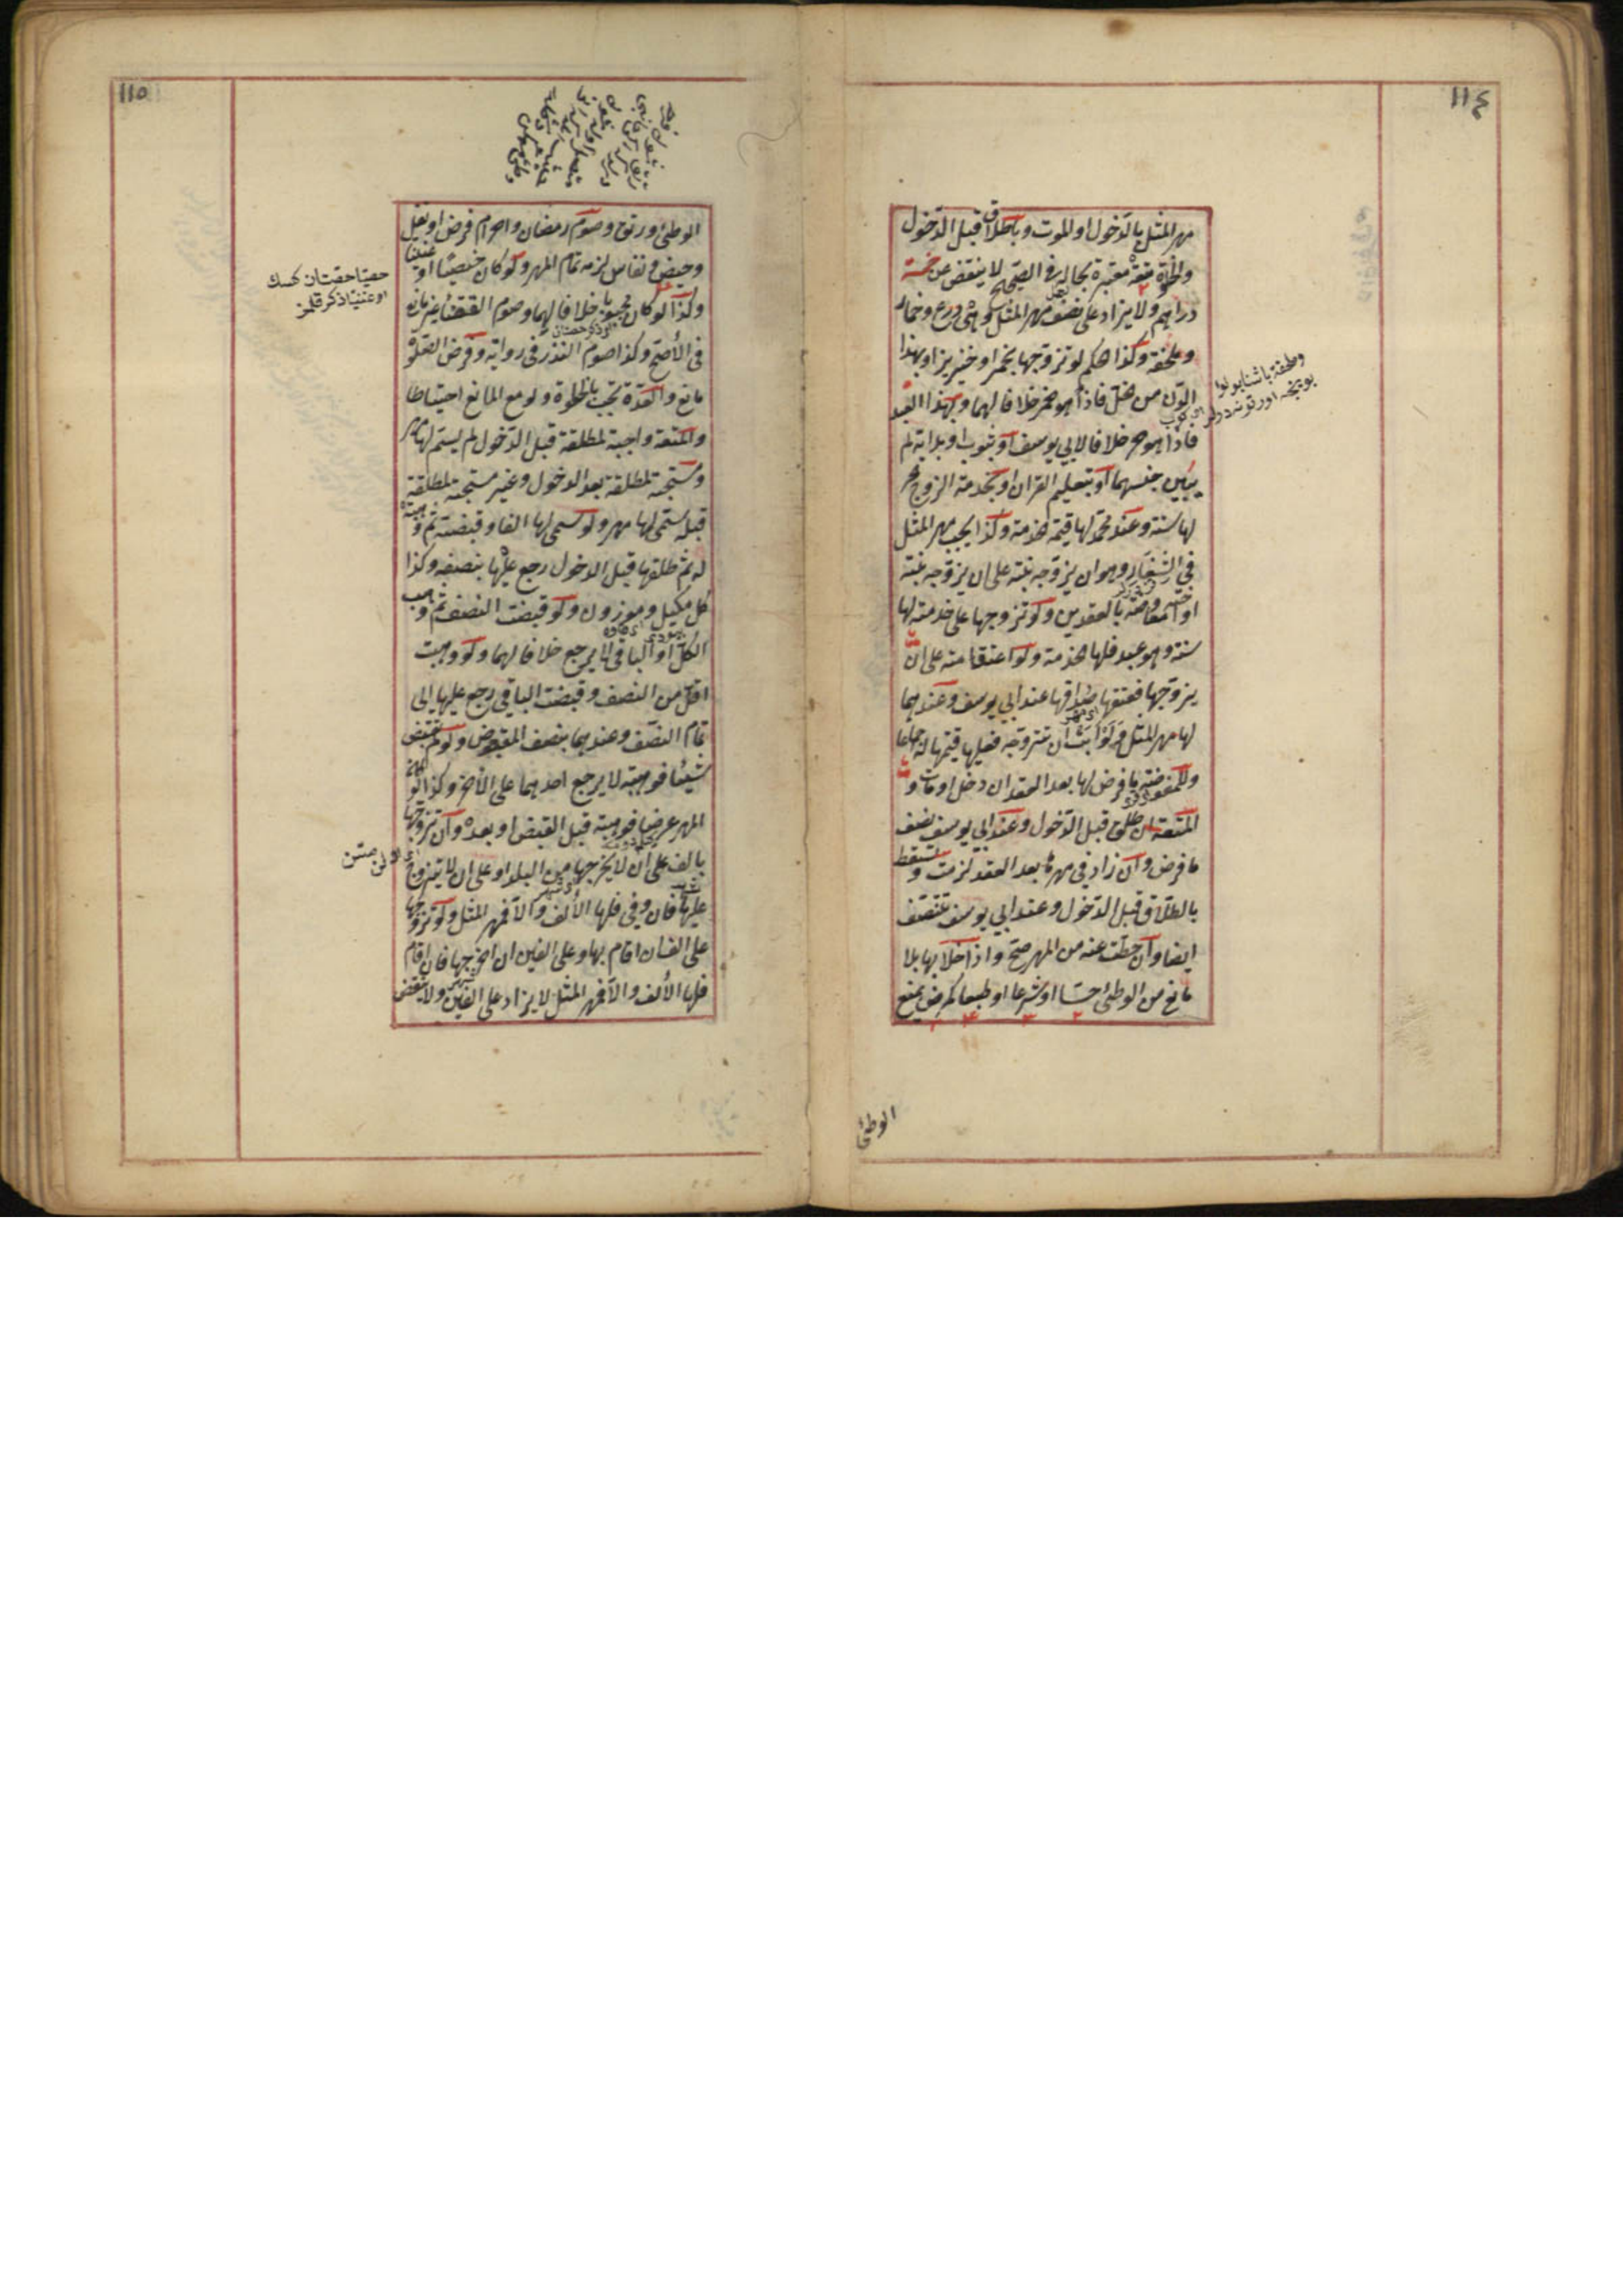 ١١٤
مهر المثل بالدخول او الموت وبالطلاق قبل الدخول
والخلوة متعة معتبرة بحاله في الصحيح لا ينقص عن خمسة
دراهم ولا يزاد على نصف مهر المثل وهي درع وخمار
وملحفة وكذا الحكم لو تزوجها بخمر او خنزير او بهذا
الدن من الخل فاذا هو خمر خلافا لهما وبهذا العبد
فاذا هو حر خلافا لابي يوسف او بثوب او بدابة لم
يبين جنسهما او بتعليم القران او بخدمة الزوج الحر
لها سنة وعند محمد لها قيمة الخدمة وكذا يجب مهر المثل
في الشغار وهو ان يزوجه بنته على ان يزوجه بنته
او اخته معاوضة بالعقدين ولو تزوجها على خدمته لها
سنة وهو عبد فلها الخدمة ولو اعتق امة على ان
يزوجها فعتقها صداقها عند ابي يوسف وعندهما
لها مهر المثل ولو ابت ان تتزوجه فعليها قيمتها له اجماعا
وللمفوضة ما فرض لها بعد العقد ان دخل او مات و
المتعة ان طلق قبل الدخول وعند ابي يوسف نصف
ما فرض وان زاد في مهرها بعد العقد لزمت وتسقط
بالطلاق قبل الدخول وعند ابي يوسف تتنصف
ايضا وان حطت عنه من المهر صح واذا خلا بها بلا
مانع من الوطئ حسا او شرعا او طبعا كمرض يمنع
الوطئ
١١٥
الوطئ ورتق وصوم رمضان واحرام فرض او نفل
وحيض ونفاس لزمه تمام المهر ولو كان خصيا او عنينا
وكذا لو كان مجبوبا خلافا لهما وصوم القضاء غير مانع
في الأصح وكذا صوم النذر في رواية وفرض الصلوة
مانع والعدة تجب بالخلوة ولو مع المانع احتياطا
والمتعة واجبة لمطلقة قبل الدخول لم يسم لها مهر
ومستحبة لمطلقة بعد الدخول وغير مستحبة لمطلقة
قبله سمى لها مهر ولو سمى لها الفا وقبضته ثم وهبته
له ثم طلقها قبل الدخول رجع عليها بنصفه وكذا
كل مكيل وموزون ولو قبضت النصف ثم وهبت
الكل او الباقي لا يرجع خلافا لهما ولو وهبت
اقل من النصف وقبضت الباقي رجع عليها الى
تمام النصف وعندهما بنصف المقبوض ولو لم تقبض
شيئا فوهبته لا يرجع احدهما على الآخر وكذا لو كان
المهر عرضا فوهبته قبل القبض او بعده وان تزوجها
بالف على ان لا يخرجها من البلد او على ان لا يتزوج
عليها فان وفى فلها الألف والا فمهر المثل ولو تزوجها
على الف ان اقام بها وعلى الفين ان اخرجها فان اقام
فلها الألف والا فمهر المثل لا يزاد على الفين ولا ينقص